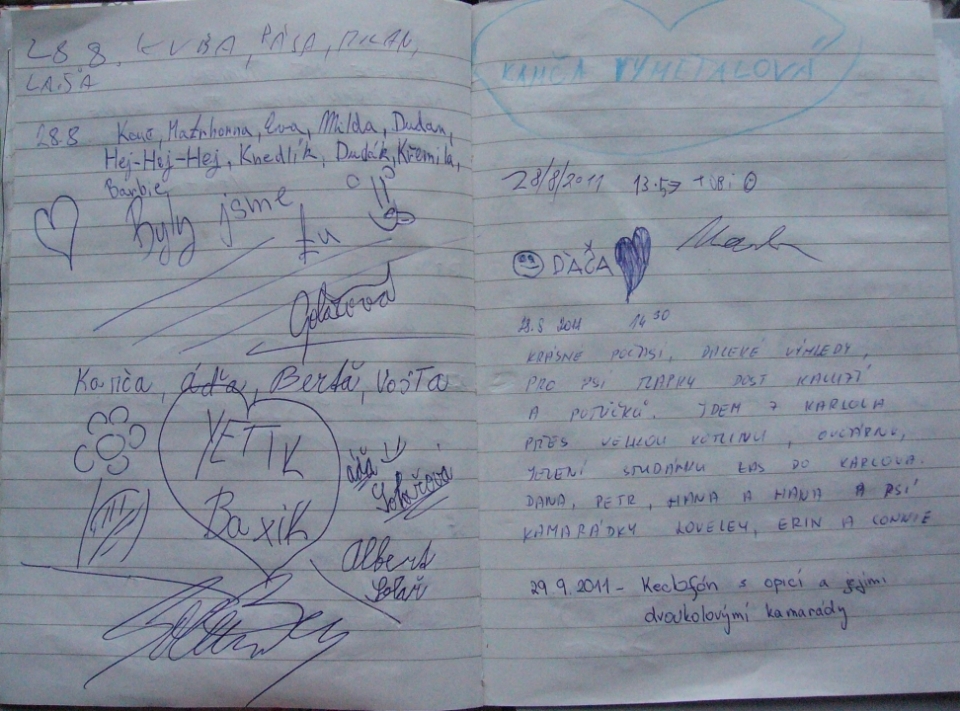 28.8. KUBA, PÁJA, MILAN,
LAJŠA
28.8 Kouč, Matrhonna, Eva, Milda, Dudan,
Hej-Hej-Hej, Knedlík, Dudák, Křemila,
Barbie
Byly jsme
tu
Solařová
Kanča, áďa, Bertă, Vojta
YETIK
BaxiK
áďa
Solařová
Albert
Solař
KANČA VYMĚTALOVÁ
28/8/2011 13:57
DÁČA
28.8 2011 14 30
KRÁSNÉ POČASÍ, DALEKÉ VÝHLEDY,
PRO PSÍ TLAPKY DOST KALUŽÍ
A POTŮČKŮ. JDEM Z KARLOVA
PŘES VELKOU KOTLINU, OVČÁRNU,
JELENÍ STUDÁNKU ZAS DO KARLOVA.
DANA, PETR, HANA A HANA A PSÍ
KAMARÁDKY LOVELEY, ERIN A CONNIE
29.9.2011 - Keclofón s opicí a jejími
dvoukolovými kamarády